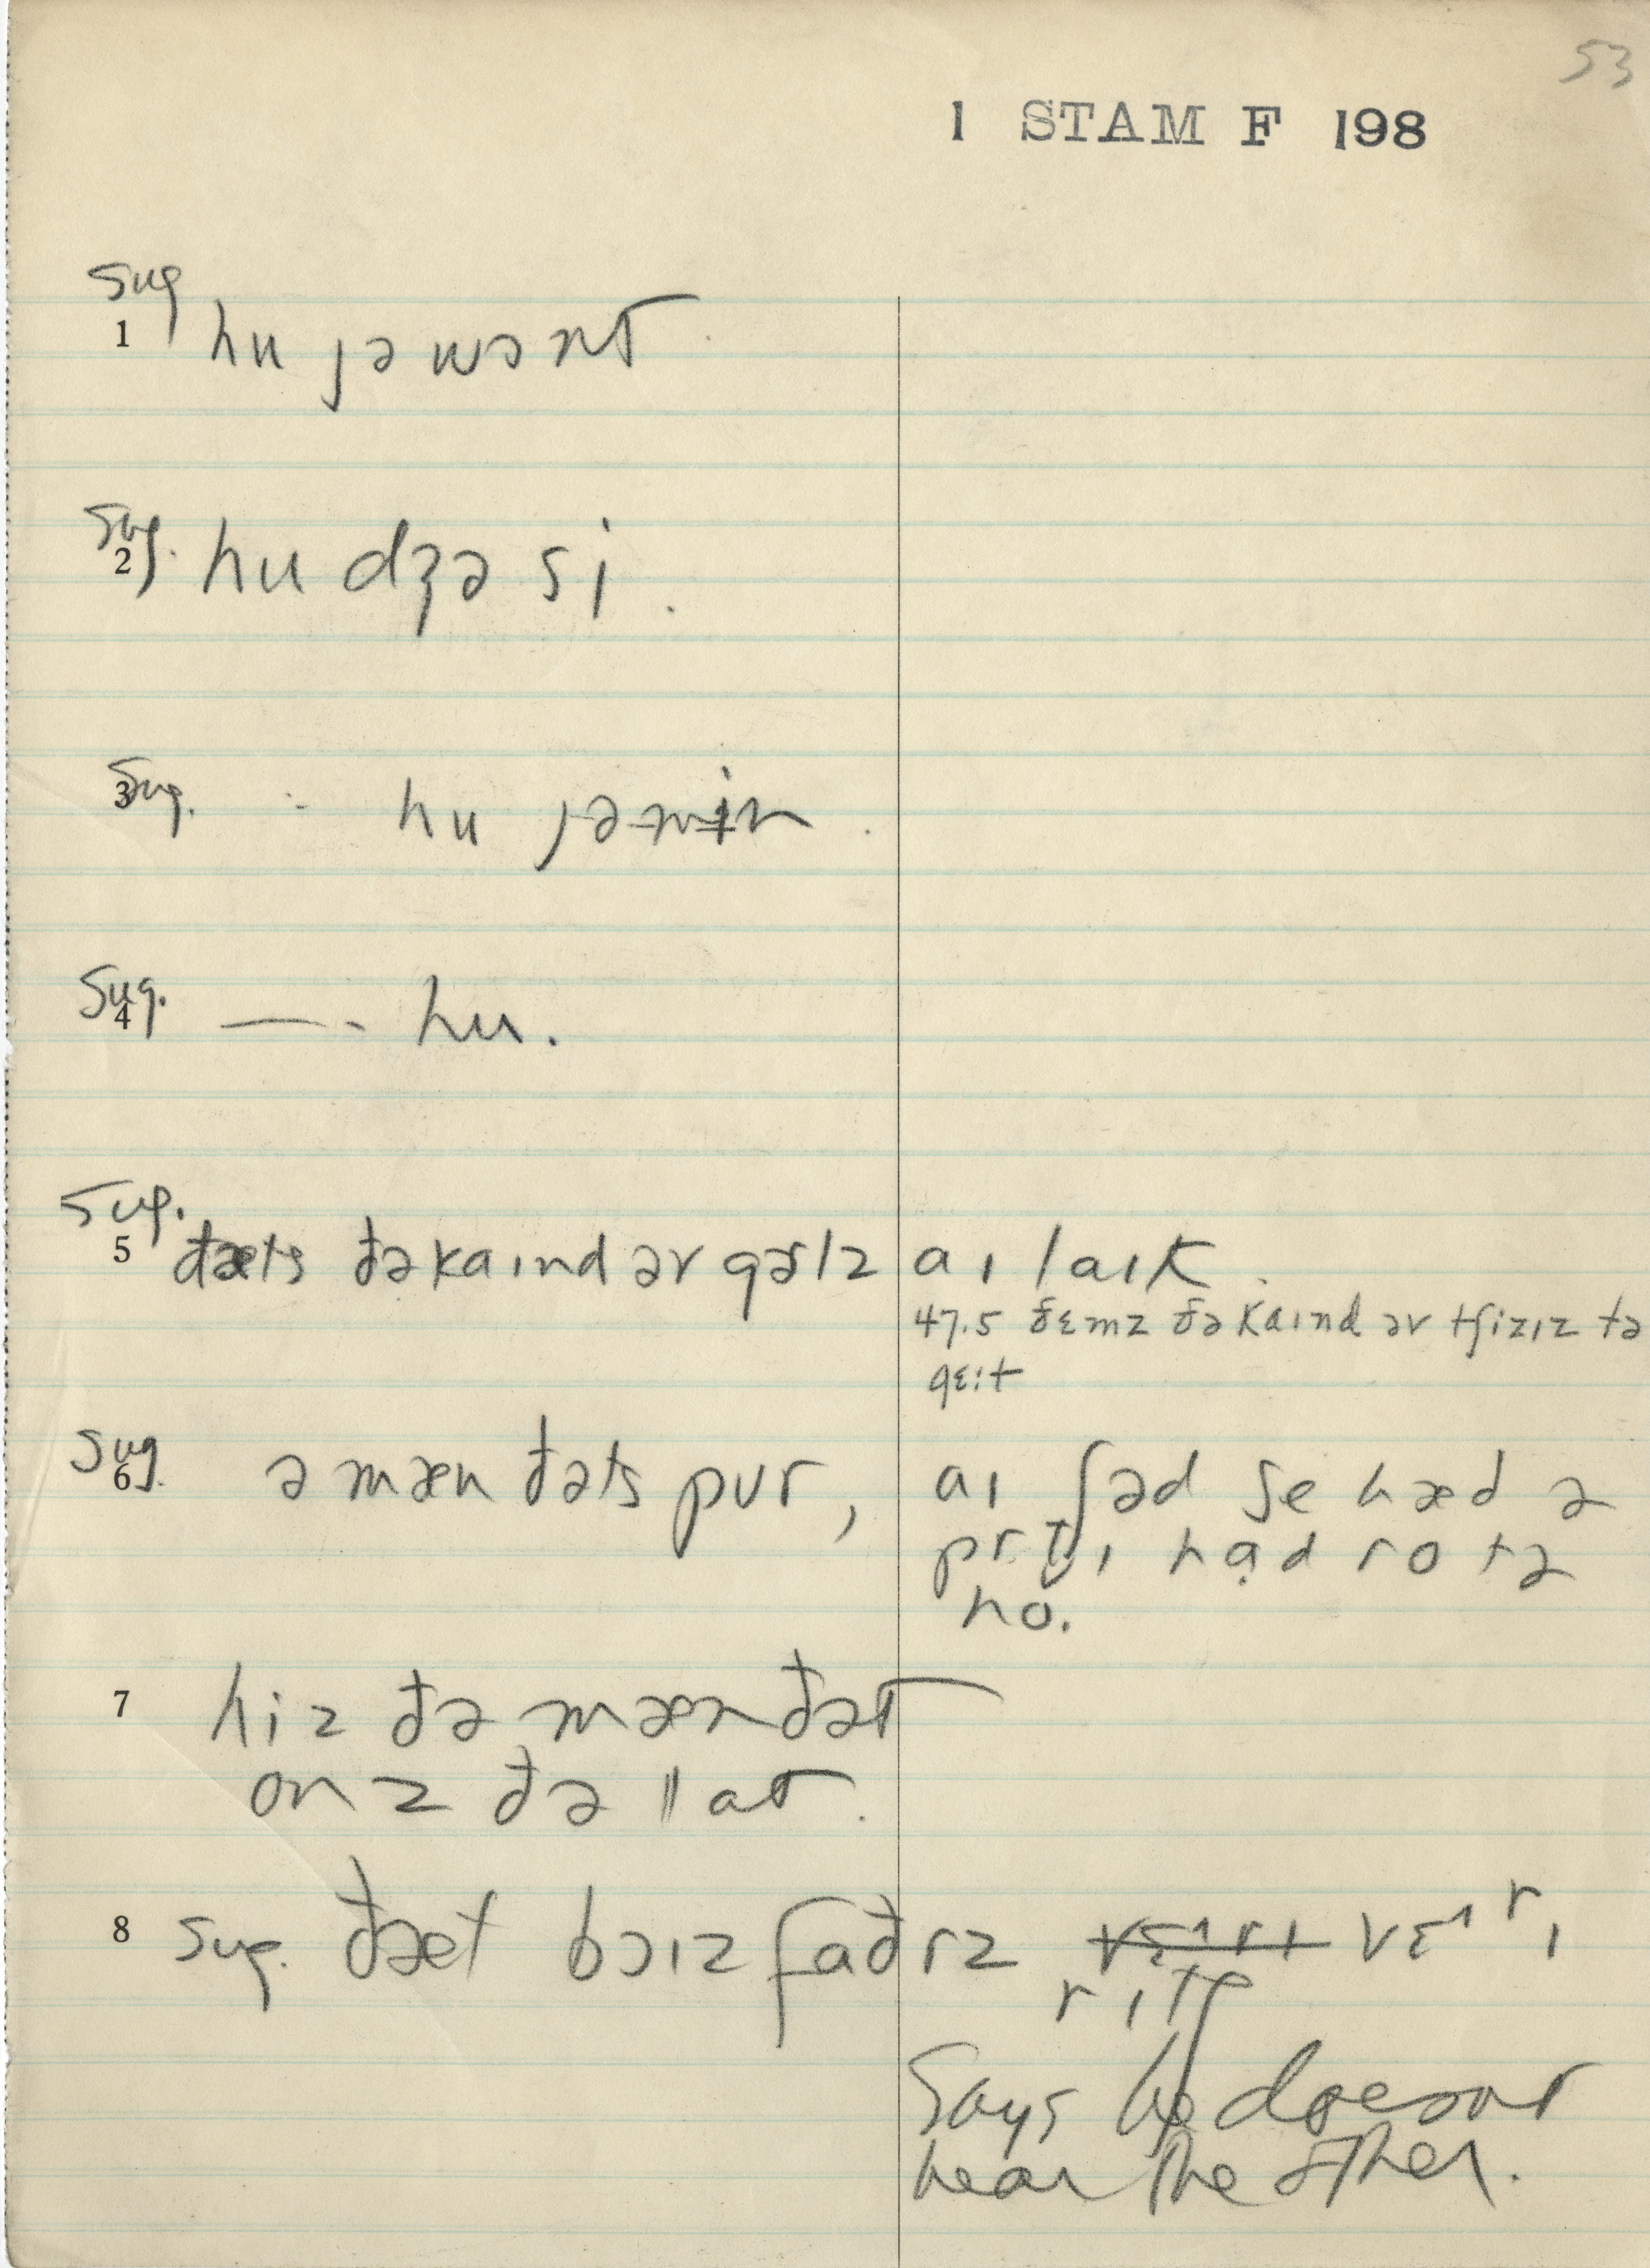 53
1 STAM F 198
Sug
1 hu jə wɔnt
Sug.
2 hu dʒə si.
Sug.
3 - hu jəmin.
Sug.
4 —— - hu.
Sug.
5 ðæts ðəkaɪnd əv gɚlz aɪ laɪk.
47.5 ðɛmz ðəkaɪnd əv tʃizɪz tə
gɛɪt
Sug.
6 ə mæn ðəts pur, aɪ ʃəd se hæd ə
prt̬ɪ hɑd ro tə
ho.
7 hiz ðə mænðət
onz ðə lat.
8 Sug. ðæt bɔɪz faðrz vɛ^rɪ vɛ^rɪ
rɪtʃ
Says he doesnt
hear the other.